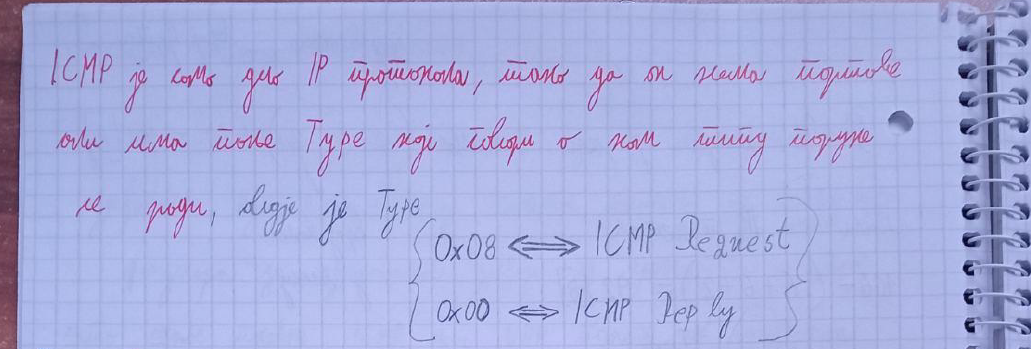 ICMP је само дио IP протокола, тако да он нема портове
али има поље Type који говори о ком типу поруке
се ради, овдје је Type
0x08 ⟺ ICMP Request
0x00 ⟺ ICMP Reply